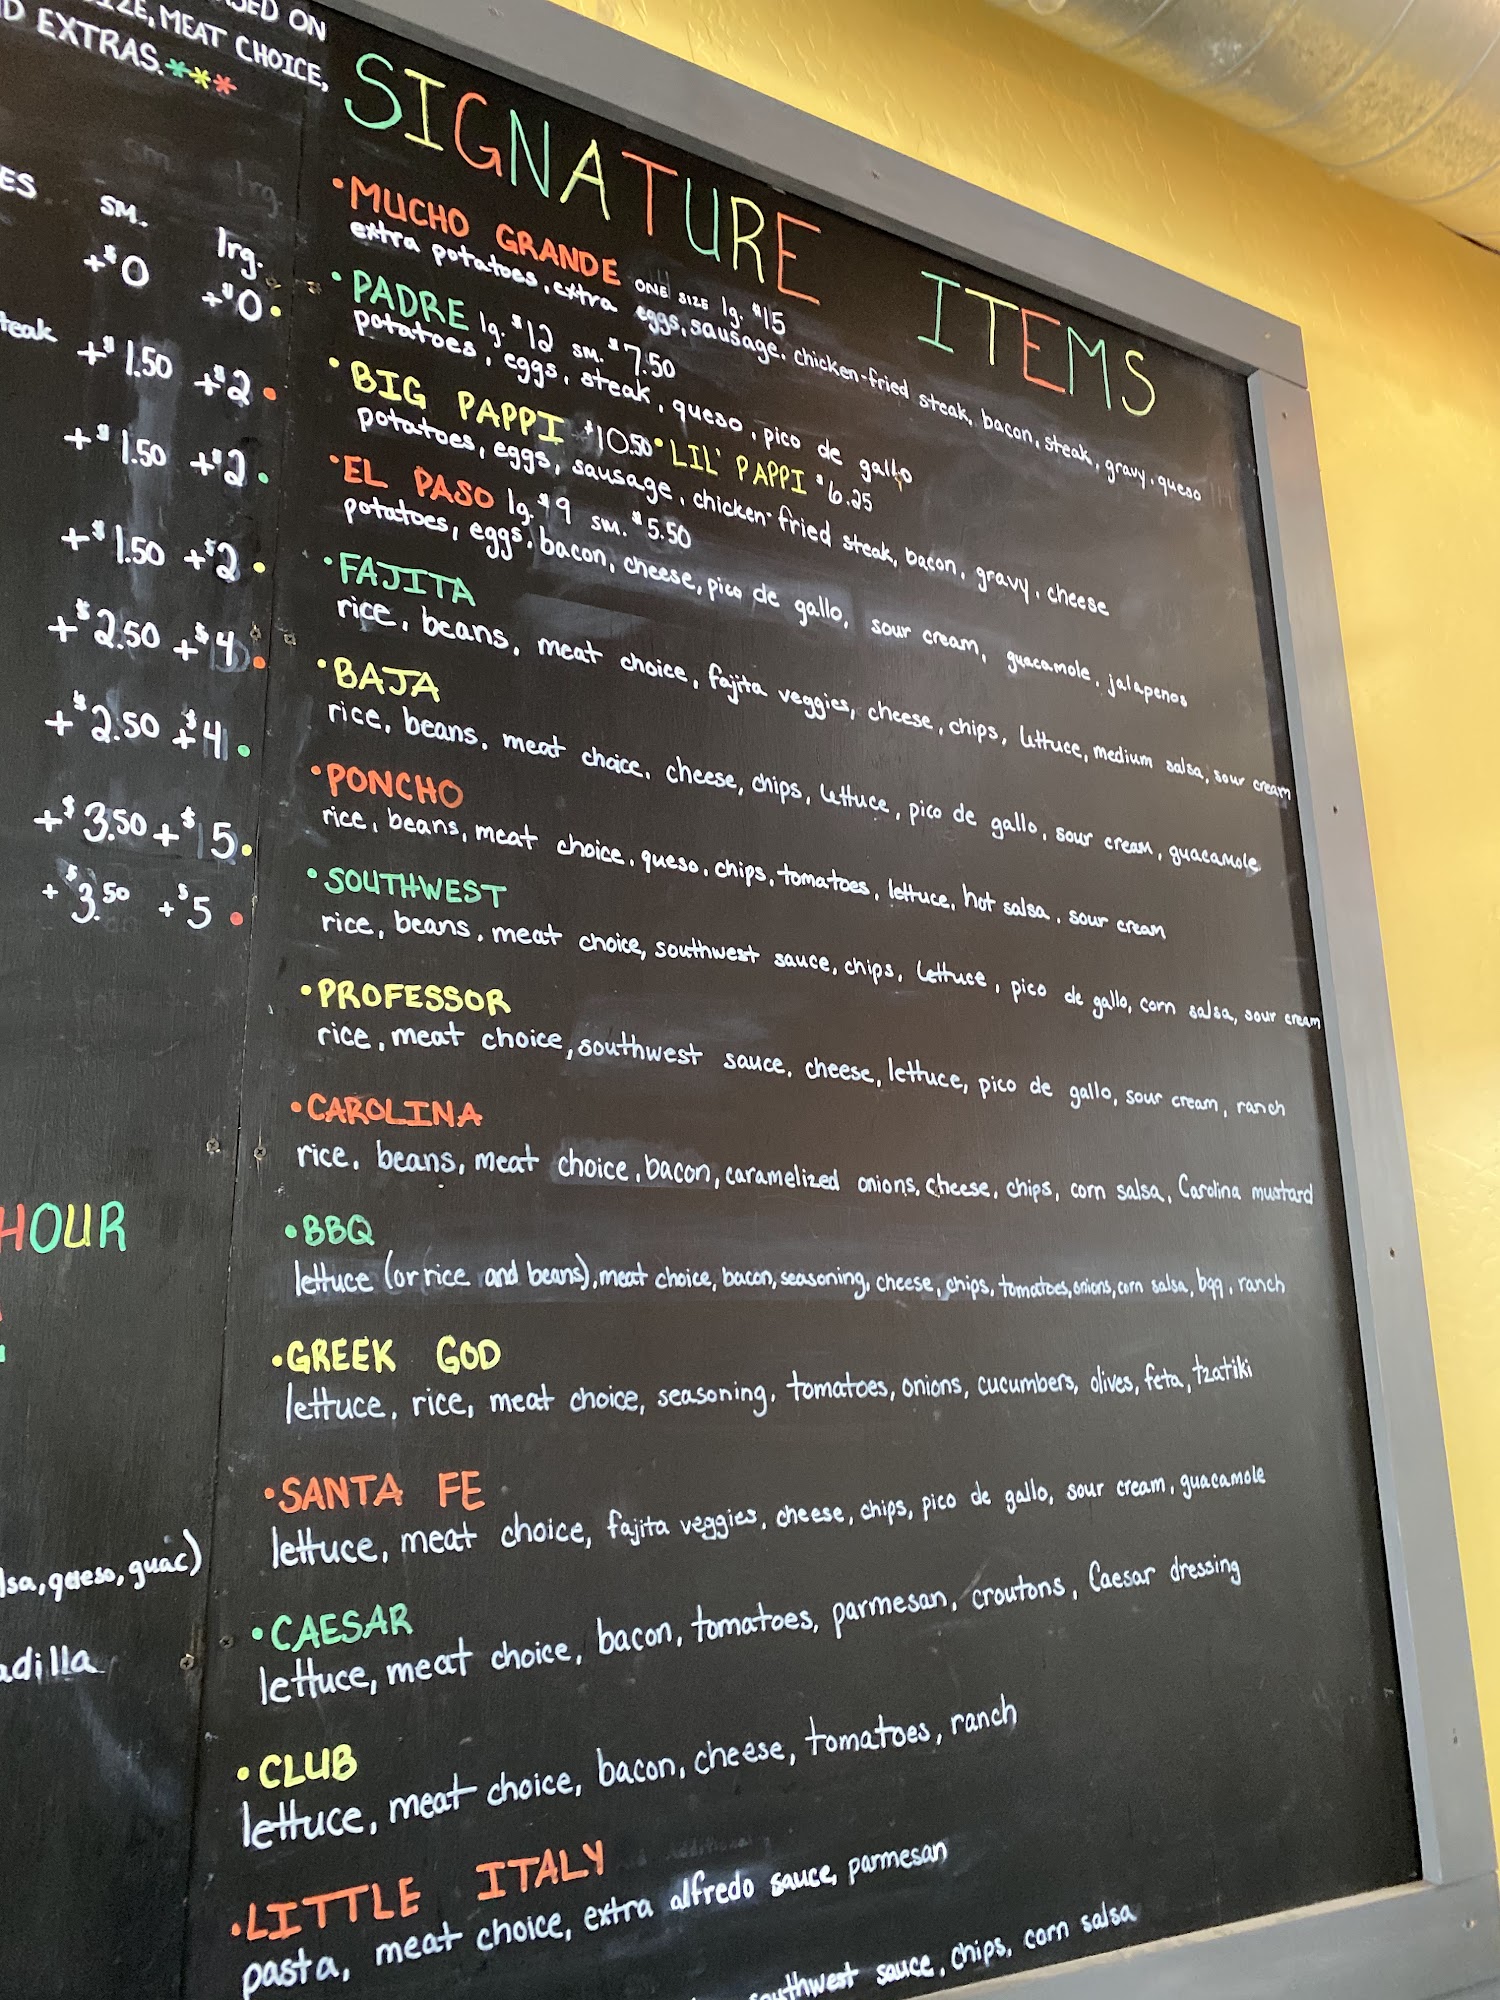 ED ON
ZE, MEAT CHOICE,
D EXTRAS.***
ES sm. lrg.
+$0 +$0
teak +$1.50 +$2
+$1.50 +$2
+$1.50 +$2
+$2.50 +$4
+$2.50 +$4
+$3.50 +$5
+$3.50 +$5
HOUR
lsa, queso, guac)
adilla
SIGNATURE ITEMS
•MUCHO GRANDE ONE SIZE lg. $15
extra potatoes, extra eggs, sausage, chicken-fried steak, bacon, steak, gravy, queso
•PADRE lg. $12 sm. $7.50
potatoes, eggs, steak, queso, pico de gallo
•BIG PAPPI $10.50 •LIL' PAPPI $6.25
potatoes, eggs, sausage, chicken-fried steak, bacon, gravy, cheese
•EL PASO lg. $9 sm. $5.50
potatoes, eggs, bacon, cheese, pico de gallo, sour cream, guacamole, jalapenos
•FAJITA
rice, beans, meat choice, fajita veggies, cheese, chips, lettuce, medium salsa, sour cream
•BAJA
rice, beans, meat choice, cheese, chips, lettuce, pico de gallo, sour cream, guacamole
•PONCHO
rice, beans, meat choice, queso, chips, tomatoes, lettuce, hot salsa, sour cream
•SOUTHWEST
rice, beans, meat choice, southwest sauce, chips, lettuce, pico de gallo, corn salsa, sour cream
•PROFESSOR
rice, meat choice, southwest sauce, cheese, lettuce, pico de gallo, sour cream, ranch
•CAROLINA
rice, beans, meat choice, bacon, caramelized onions, cheese, chips, corn salsa, Carolina mustard
•BBQ
lettuce (or rice and beans), meat choice, bacon, seasoning, cheese, chips, tomatoes, onions, corn salsa, bqq, ranch
•GREEK GOD
lettuce, rice, meat choice, seasoning, tomatoes, onions, cucumbers, olives, feta, tzatiki
•SANTA FE
lettuce, meat choice, fajita veggies, cheese, chips, pico de gallo, sour cream, guacamole
•CAESAR
lettuce, meat choice, bacon, tomatoes, parmesan, croutons, Caesar dressing
•CLUB
lettuce, meat choice, bacon, cheese, tomatoes, ranch
•LITTLE ITALY
pasta, meat choice, extra alfredo sauce, parmesan
southwest sauce, chips, corn salsa